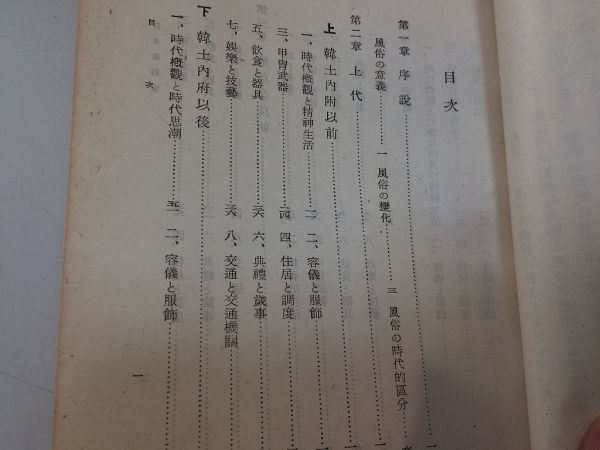 目次
第一章 序說
風俗の意義 一 風俗の變化 三 風俗の時代的區分
第二章 上代
上 韓土內附以前
一、時代槪觀と精神生活 二、容儀と服飾
三、甲冑武器 四、住居と調度
五、飮食と器具 六、典禮と歲事
七、娛樂と技藝 八、交通と交通機關
下 韓土內府以後
一、時代槪觀と時代思潮 五一 二、容儀と服飾
目次 一